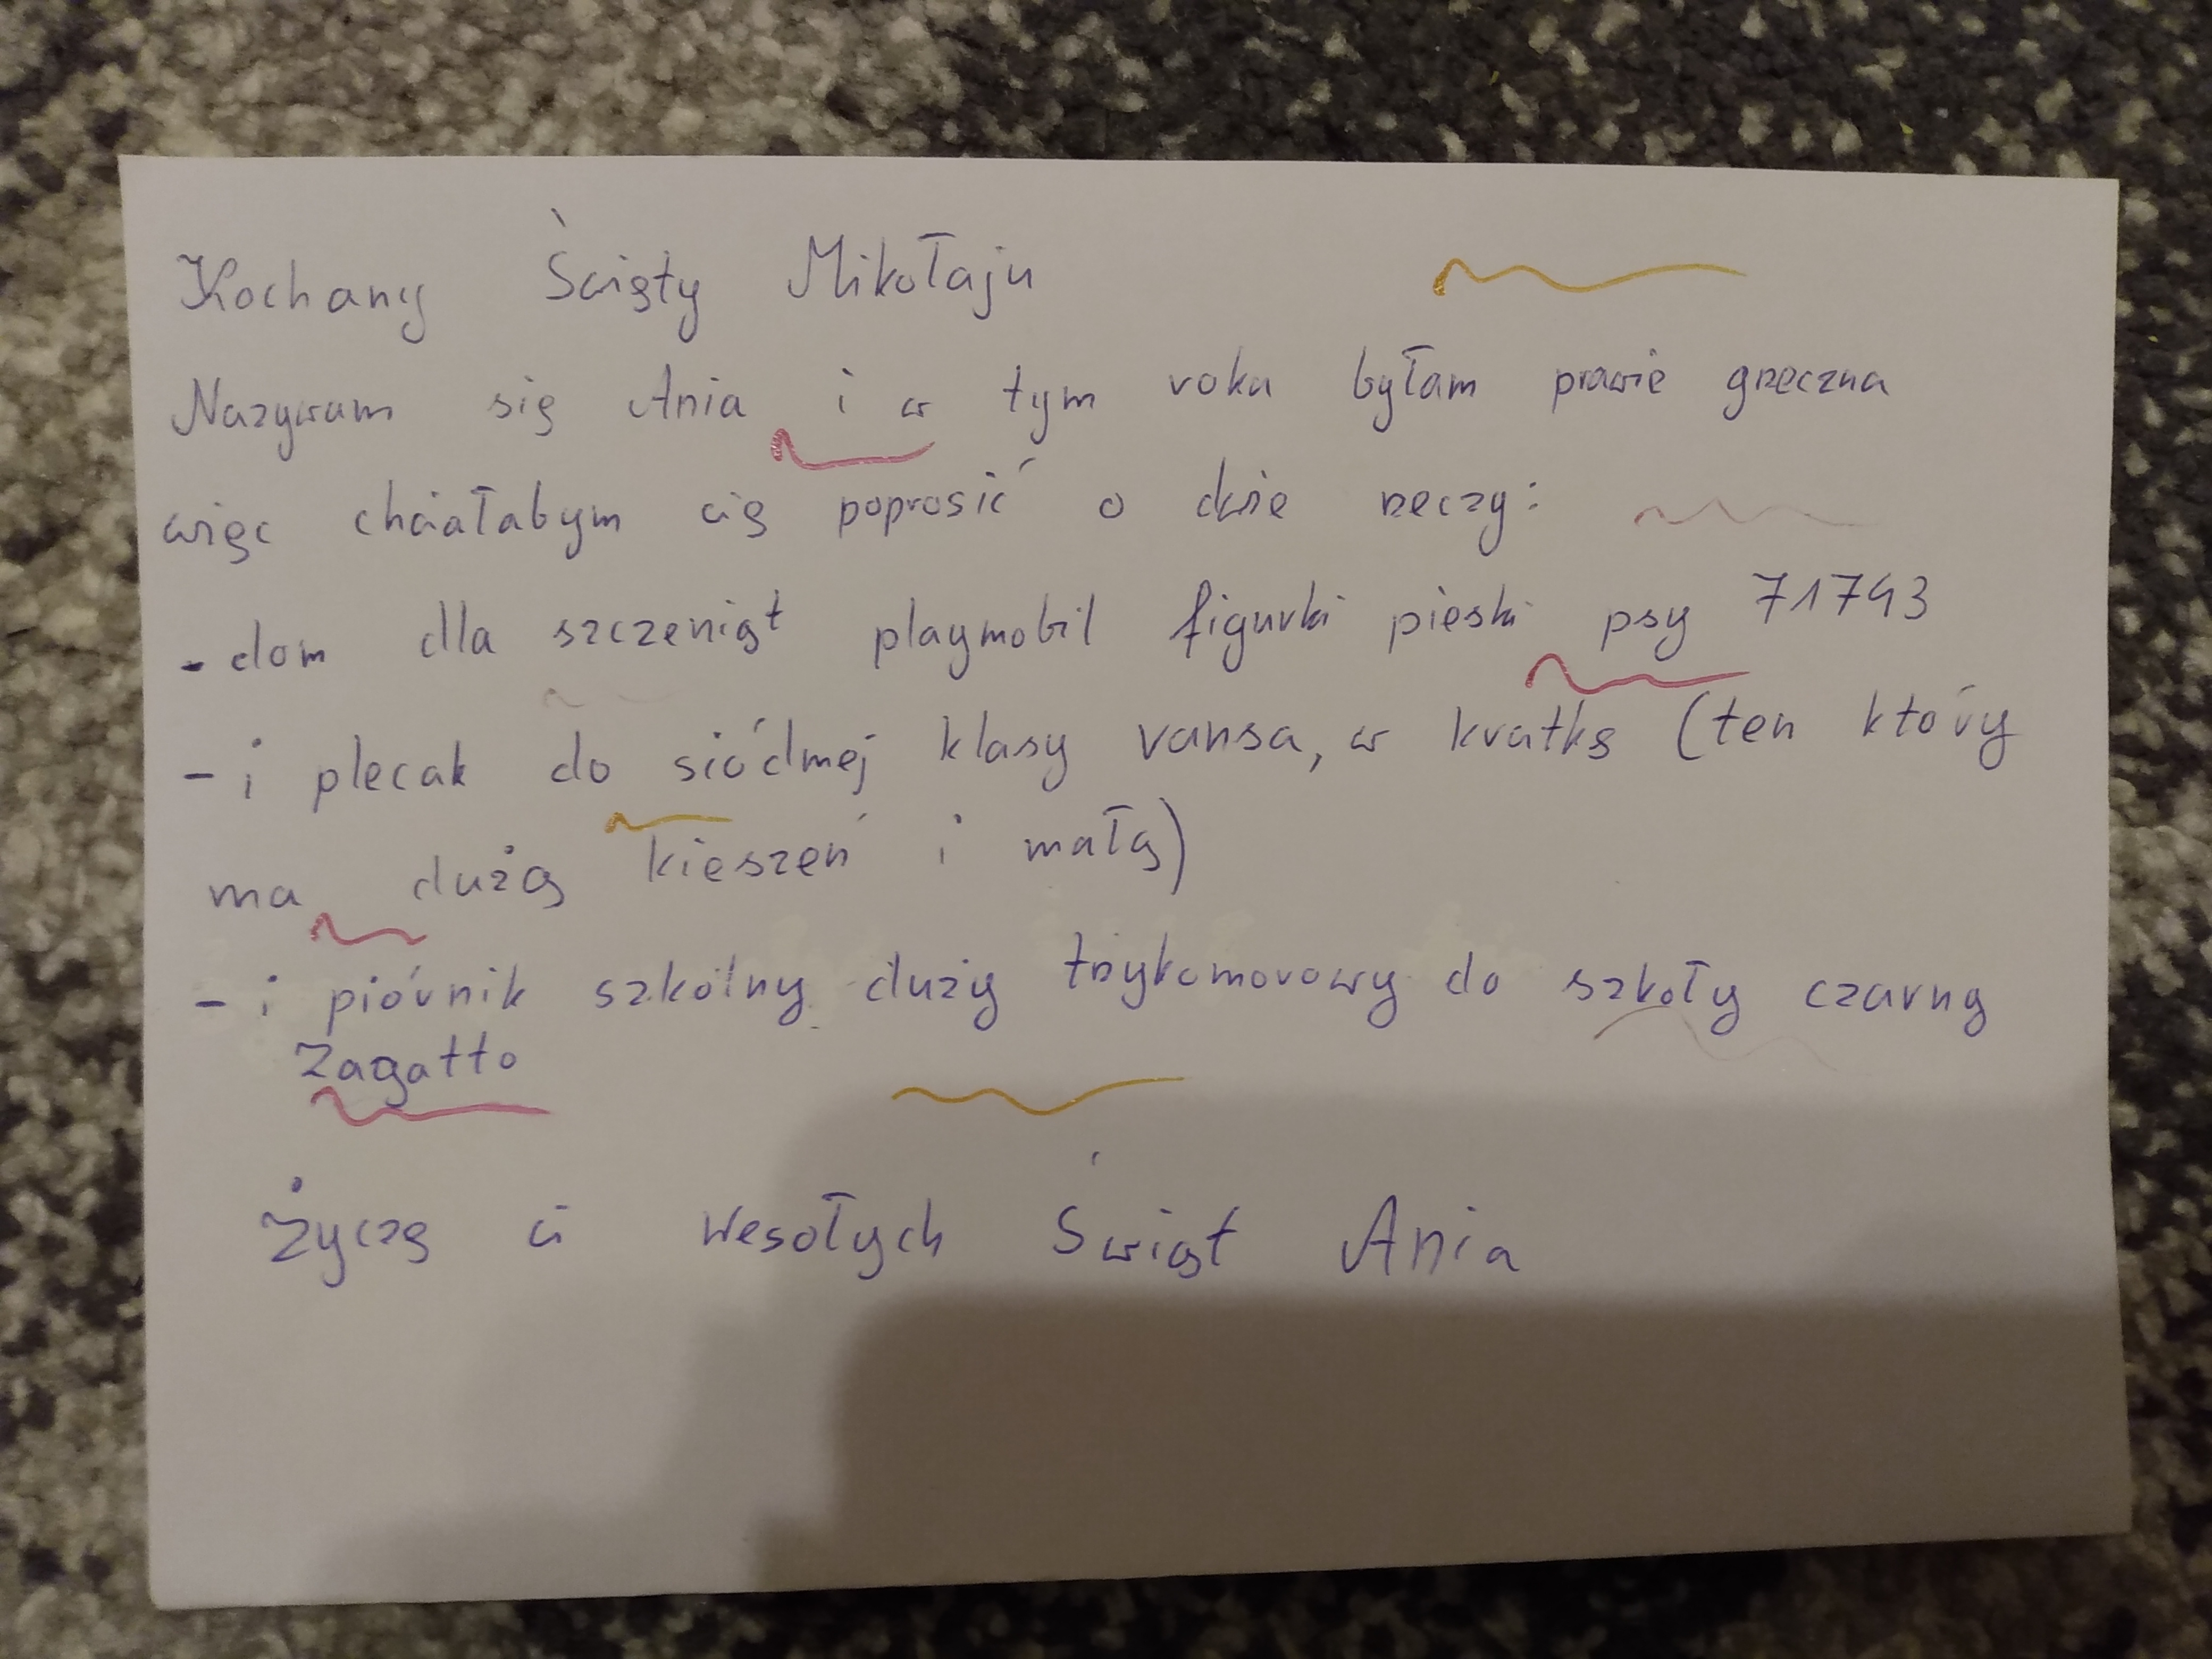 Kochany Święty Mikołaju
Nazywam się Ania i w tym roku byłam prawie grzeczna
więc chciałabym cię poprosić o dwie rzeczy:
- dom dla szczeniąt playmobil figurki pieski psy 71743
- i plecak do siódmej klasy vansa, w kratkę (ten który
ma dużą kieszeń i małą)
- i piórnik szkolny duży trzykomorowy do szkoły czarny
Zagatto
Życzę ci Wesołych Świąt Ania